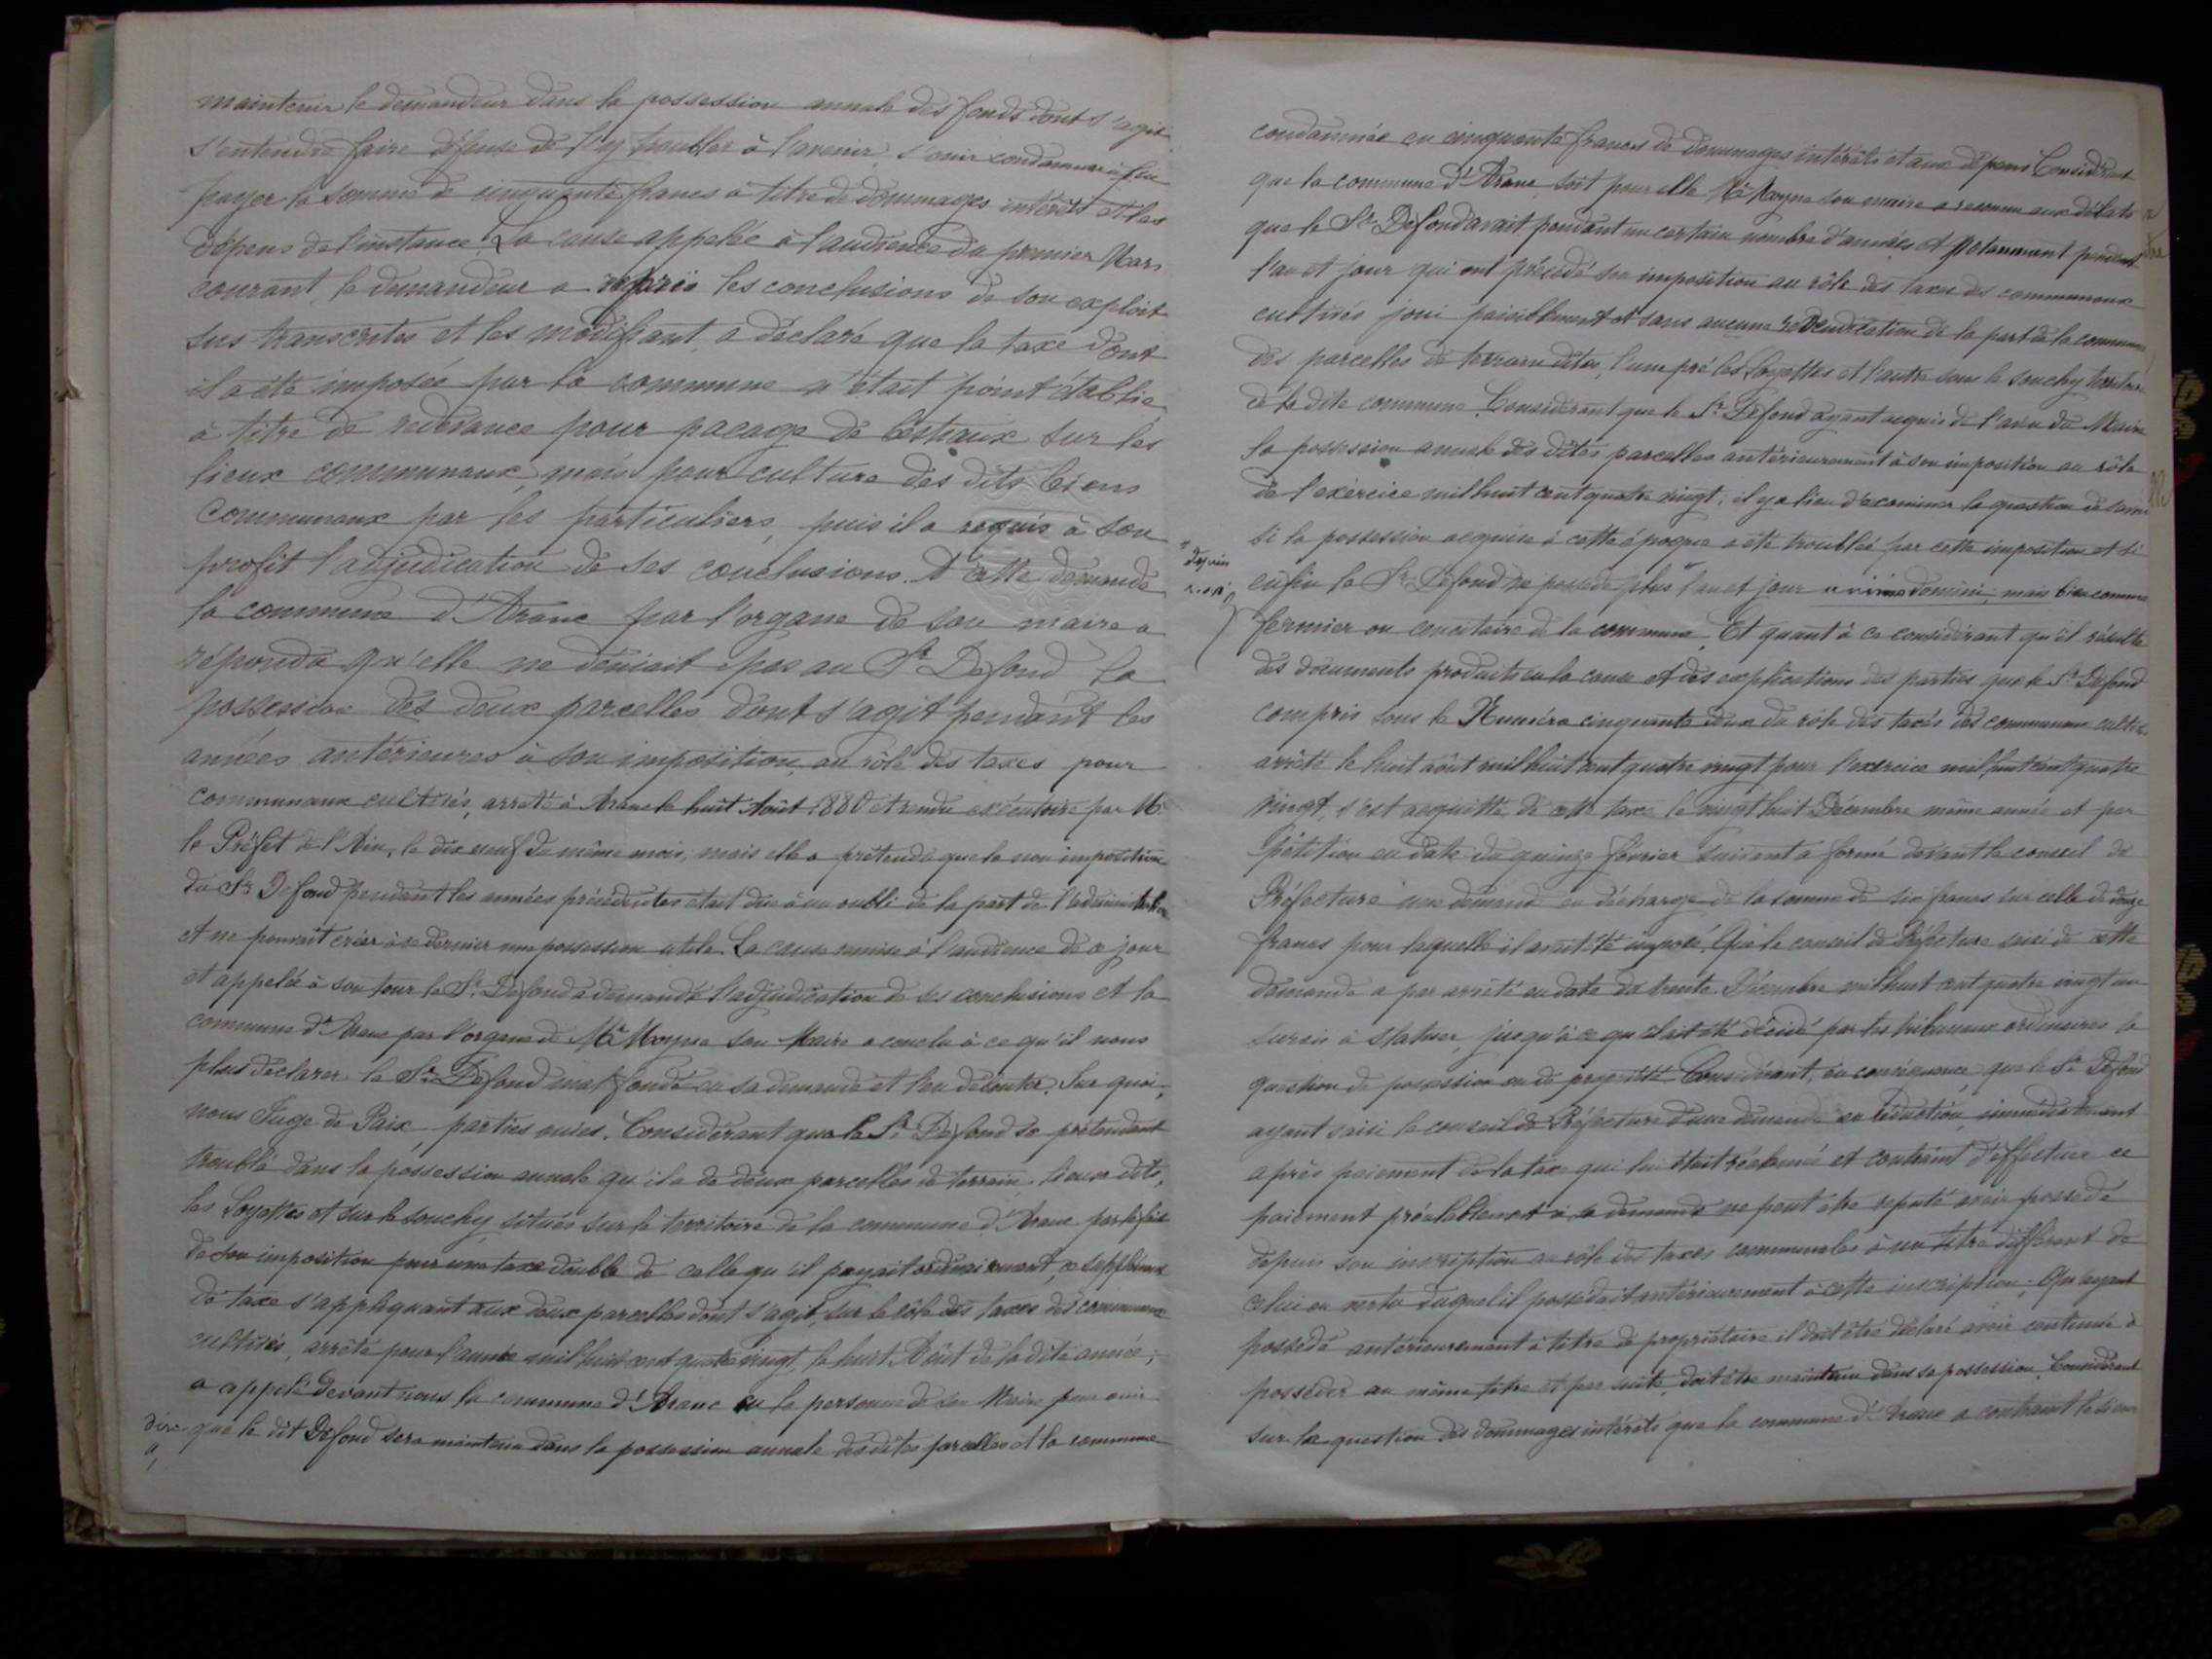 maintenir le demandeur dans la possession annale des fonds dont s'agit
s'entendre faire défense de l'y troubler à l'avenir, s'ouir condamner à lui
payer la somme de cinquante francs à titre de dommages intérêts et les
dépens de l'instance. La cause appelée à l'audience du premier Mars
courant, le demandeur a repris les conclusions de son exploit
sus transcrites et les modifiant, a déclaré que la taxe dont
il a été imposée par la commune n'était point établie
à titre de redevance pour pacage de bestiaux sur les
lieux communaux, mais pour culture des dits biens
communaux par les particuliers, puis il a requis à son
profit l'adjudication de ses conclusions. A cette demande
la commune d'Aranc par l'organe de son maire a
répondu qu'elle ne déniait pas au Sr Defond la
possession des deux parcelles dont s'agit pendant les
années antérieures à son imposition au rôle des taxes pour
communaux cultivés, arrêté à Aranc le huit Août 1880 et rendu exécutoire par Mr
le Préfet de l'Ain, le dix neuf du même mois; mais elle a prétendu que la non imposition
du Sr Defond pendant les années précédentes était due à un oubli de la part de l'administration
et ne pouvait créer à ce dernier une possession utile. La cause remise à l'audience de ce jour
et appelée à son tour le Sr Defond a demandé l'adjudication de ses conclusions et la
commune d'Aranc par l'organe de Mr Moyne son Maire a conclu à ce qu'il nous
plus déclarer le Sr Defond mal fondé en sa demande et l'en débouter. Sur quoi,
nous Juge de Paix parties ouies. Considérant que le Sr Defond se prétendant
troublé dans la possession annale qu'il a de deux parcelles de terrain, lieux dits,
les Loyettes et sur le souchy, situés sur le territoire de la commune d'Aranc par le fait
de son imposition pour une taxe double de celle qu'il payait ordinairement, ce supplément
de taxe s'appliquant aux deux parcelles dont s'agit, sur le rôle des taxes des communaux
cultivés, arrêté pour l'année mil huit cent quatre vingt, le huit Août de la dite année;
a appelé devant nous la commune d'Aranc en la personne de son Maire pour ouir
dire que le dit Defond sera maintenu dans la possession annale des dites parcelles et la commune
condamnée en cinquante francs de dommages intérêts et aux dépens. Considérant
que la commune d'Aranc soit pour elle Mr Moyne son maire a reconnu aux débats
que le Sr Defond avait pendant un certain nombre d'années et notamment pendant
l'an et jour qui ont précédé son imposition au rôle des taxes des communaux
cultivés joui paisiblement et sans aucune revendication de la part de la commune
des parcelles de terrain dites, l'une pré les Loyettes et l'autre sous le souchy territoire
de la dite commune. Considérant que le Sr Defond ayant acquis de l'aveu du Maire
la possession annale des dites parcelles antérieurement à son imposition au rôle
de l'exercice mil huit cent quatre vingt, il y a lieu d'examiner la question de savoir
si la possession acquise à cette époque a été troublée par cette imposition et si
enfin le Sr Defond ne possède plus l'an et jour animo domini, mais bien comme
fermier ou de la commune. Et quant à ce considérant qu'il résulte
des documents produits en la cause et des explications des parties que le Sr Defond
compris sous le Numéro cinquante deux du rôle des taxes des communaux cultivés
arrêté le huit août mil huit cent quatre vingt pour l'exercice mil huit cent quatre
vingt, s'est acquitté de cette taxe le vingt huit Décembre même année et par
pétition en date du quinze février suivant a formé devant le conseil de
Préfecture une demande en décharge de la somme de six francs sur celle de douze
francs pour laquelle il avait été imposé. Que le conseil de Préfecture saisi de cette
demande a par arrêté en date du trente Décembre mil huit cent quatre vingt un
sursis à statuer, jusqu'à ce qu'il ait été décidé par les tribunaux ordinaires la
question de possession ou de propriété. Considérant, en conséquence, que le Sr Defond
ayant saisi le conseil de Préfecture d'une demande en réduction, immédiatement
après paiement de la taxe qui lui était réclamée et contraint d'effectuer ce
paiement préalablement à sa demande ne peut être réputé avoir possédé
depuis son inscription au rôle des taxes communales à un titre différent de
celui en vertu duquel il possédait antérieurement à cette inscription; Qu'ayant
possédé antérieurement à titre de propriétaire il doit être déclaré avoir continué à
posséder au même titre et par suite, doit être maintenu dans sa possession. Considérant
sur la question des dommages intérêts que la commune d'Aranc a contraint le sieur